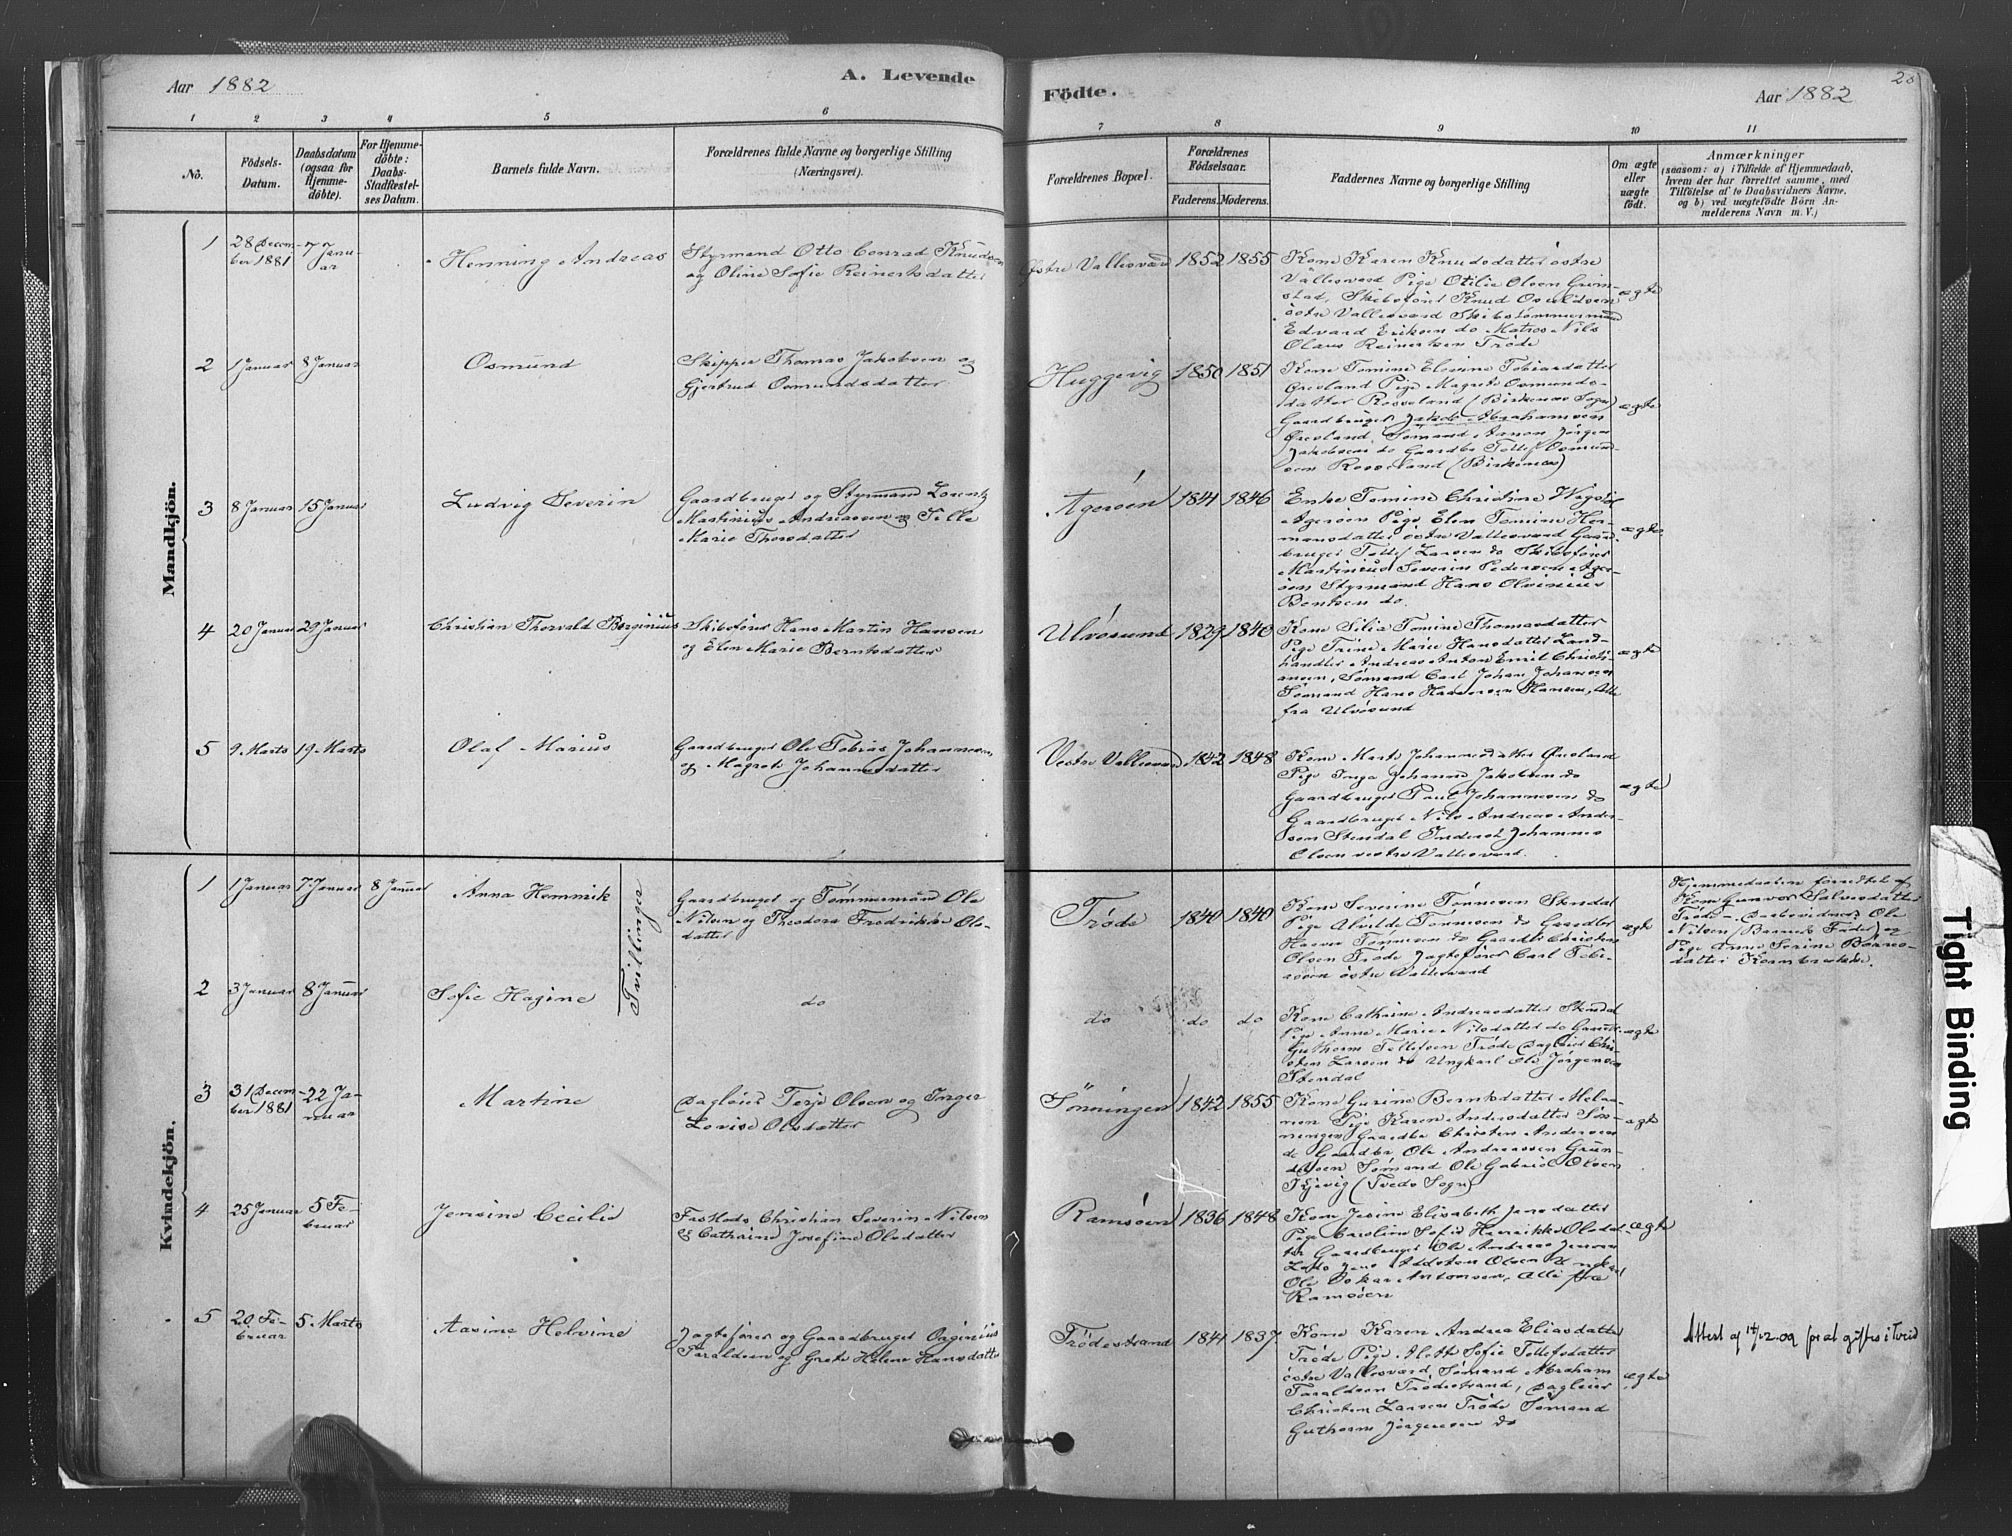 Aar 1882
A. Levende
Födte.
Aar 1882
1 2 3 4 5 6 7 8 9 10 11
No.
Födsels-
Datum.
Daabsdatum
(ogsaa for
Hjemme-
döbte).
For Hjemme-
döbte:
Daabs-
Stadfæstel-
ses Datum.
Barnets fulde Navn.
Forældrenes fulde Navne og borgerlige Stilling
(Næringsvei).
Forældrenes Bopæl.
Forældrenes
Födselsaar.
Faderens. Moderens.
Faddernes Navne og borgerlige Stilling
Om ægte
eller
uægte
födt.
Anmærkninger
(saasom: a) i Tilfælde af Hjemmedaab,
hvem der har forrettet samme, med
Tilföielse af to Daabsvidners Navne,
og b) ved uægtefödte Börn An-
melderens Navn m. V.)
Mandkjön.
1
28 Decem-
ber 1881
7 Janu-
ar
Henning Andreas
Styrmand Otto Conrad Knudsen
og Oline Sofie Reinertsdatter
Østre Vallesværd
1852 1855
Kone Karen Knudsdatter østre
Vallesværd Pige Otilie Olsen Grim-
stad, Skibsfører Knud Osuldsen
østre Vallesværd Skibstømmermand
Edvard Eriksen do Matros Nils
Olaus Reinertsen Trøde
ægte
2
1 Januar
8 Januar
Osmund
Skipper Thomas Jakobsen og
Gjertrud Osmundsdatter
Huggevig
1850 1851
Kone Tomine Elevine Tobiasdatter
Øresland Pige Magrete Osmunds-
datter Rosseland (Birkenæs Sogn)
Gaardbruger Jakob Abrahamsen
Øresland Sømand Aanon Jørgen
Jakobsen do Gaardbr Tellef Osmund-
sen Rosseland (Birkenæs)
ægte
3
8 Januar
15 Januar
Ludvig Severin
Gaardbruger og Styrmand Lorentz
Martinius Andreasen og Tille
Marie Thorsdatter
Agerøen
1841 1846
Enke Tomine Christine
Agerøen Pige Elen Tomine Her-
mansdatter østre Vallesværd Gaard-
bruger Tellef Larsen do Skibsfører
Martinius Severin Pedersen Ager-
øen Styrmand Hans Olvinius
Bentsen do.
ægte
4
20 Januar
29 Januar
Christian Thorvald Berginius
Skibsfører Hans Martin Hansen
og Elen Marie Berntsdatter
Ulvøsund
1829 1840
Kone Silia Tomine Thomasdatter
Pige Trine Marie Hansdatter Land-
handler Andreas Anton Emil Christi-
ansen, Sømand Carl Johan Johansen
Sømand Hans Hansen, Alle
fra Ulvøsund
ægte
5
9 Marts
19 Marts
Olaf Marius
Gaardbruger Ole Tobias Johannesen
og Magrete Johannesdatter
Vestre Vallesværd
1842 1848
Kone Marte Johannesdatter Øresland
Pige Inga Johanne Jakobsen do
Gaardbruger Paul Johannesen do
Gaardbruger Nils Andreas Ander-
sen Stendal Inderst Johannes
Olsen vestre Vallesværd.
ægte
Kvindekjön.
1
1 Januar
7 Januar
8 Januar
Anna Hemmik
Tvillinger
Gaardbruger og Tømmermand Ole
Nilsen og Theodora Fredrikke Ols-
datter
Trøde
1840 1840
Kone Severine Tønnesen Stendal
Pige Alvilde Tønnesen do Gaardbr
Tønnesen do Gaardbr Christen
Olsen Trøde Jagtefører Carl Tobi-
asen østre Vallesværd
ægte
Hjemmedaaben forrettet af
Kone Gunvor Salvesdatter
Trøde. Daabsvidner Ole
Nilsen (Barnets Fader) og
Pige Anne Serine
datter
2
3 Januar
8 Januar
Sofie Hagine
do
do
do
do
Kone Cathrine Andreasdatter Stendal
Pige Anne Marie Nilsdatter do Gaardbr
Guthorm Tellefsen Trøde Dagleier Chri-
sten Larsen do Ungkarl Ole Jørgensen
Stendal
ægte
3
31 Decem-
ber 1881
22 Ja-
nuar
Martine
Dagleier Terje Olsen og Inger
Lovise Olsdatter
Sønningen
1842 1855
Kone Gurine Berntsdatter
Pige Karen Andersdatter Søn-
ningen Gaardbr Christen Andersen
do Gaardbr Ole Andreassen
Sømand Ole Gabriel Olsen
Kjevig (Tveds Sogn)
ægte
4
25 Januar
5 Fe-
bruar
Jensine Cecilie
Christian Severin Nilsen
& Cathrine Josefine Olsdatter
Ramsøen
1836 1848
Kone Jesine Elisabeth Jensdatter
Pige Caroline Sofie Henrikke Olsdat-
ter Gaardbruger Ole Andreas Jensen
Lods Jens Olsen Ungkarl
Ole Oskar Antonsen, Alle fra
Ramsøen
ægte
5
20 Fe-
bruar
5 Marts
Aasine Helvine
Jagtefører og Gaardbruger Orginius
Taraldsen og Grete Helene Hansdatter
Trødestrand
1841 1837
Kone Karen Andrea Eliasdatter
Trøde Pige Alett Sofie Tellefsdatter
østre Vallesværd, Sømand Abraham
Taraldsen Trødestrand, Dagleier
Christen Larsen Trøde Sømand
Guthorm Jørgensen do
ægte
Attest af 14/12 09 for at giftes i Tveid
Tight Binding